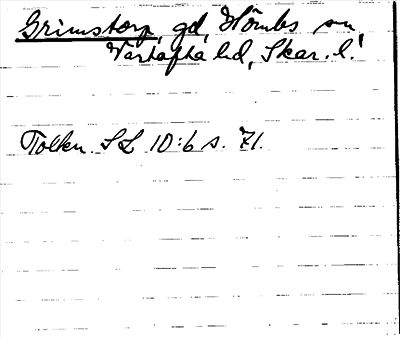 Grimstorp, gd, Hömbs sn,
Vartofta hd, Skar. l.
Tolkn. SL 10:6 s. 71.